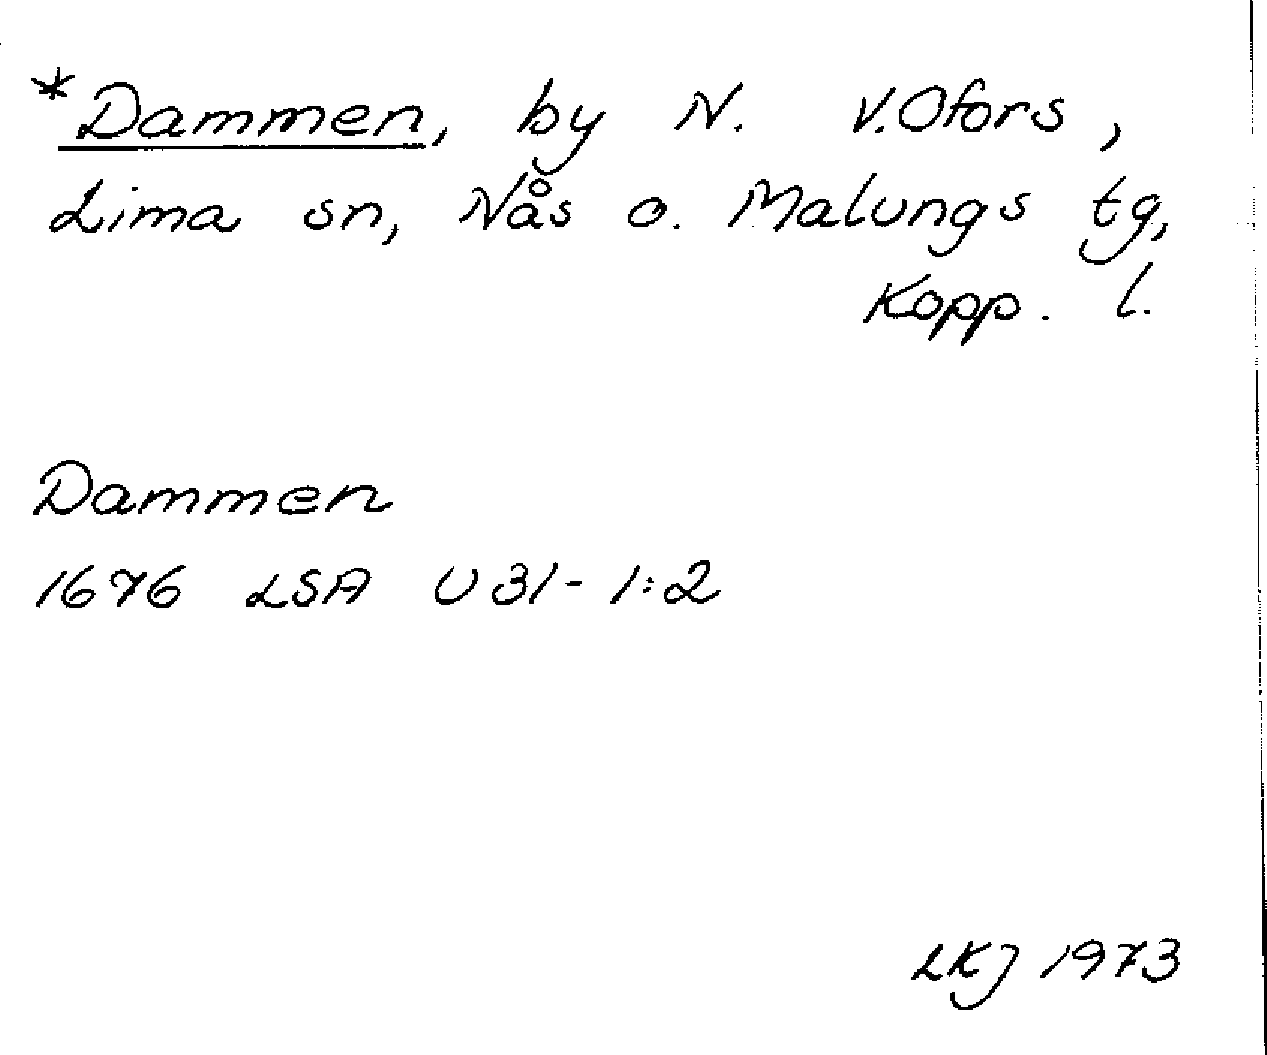 *Dammen, by N. V. Ofors,
Lima sn, Nås o. Malungs tg,
Kopp. l.
Dammen
1676 LSA U31-1:2
LKJ 1973